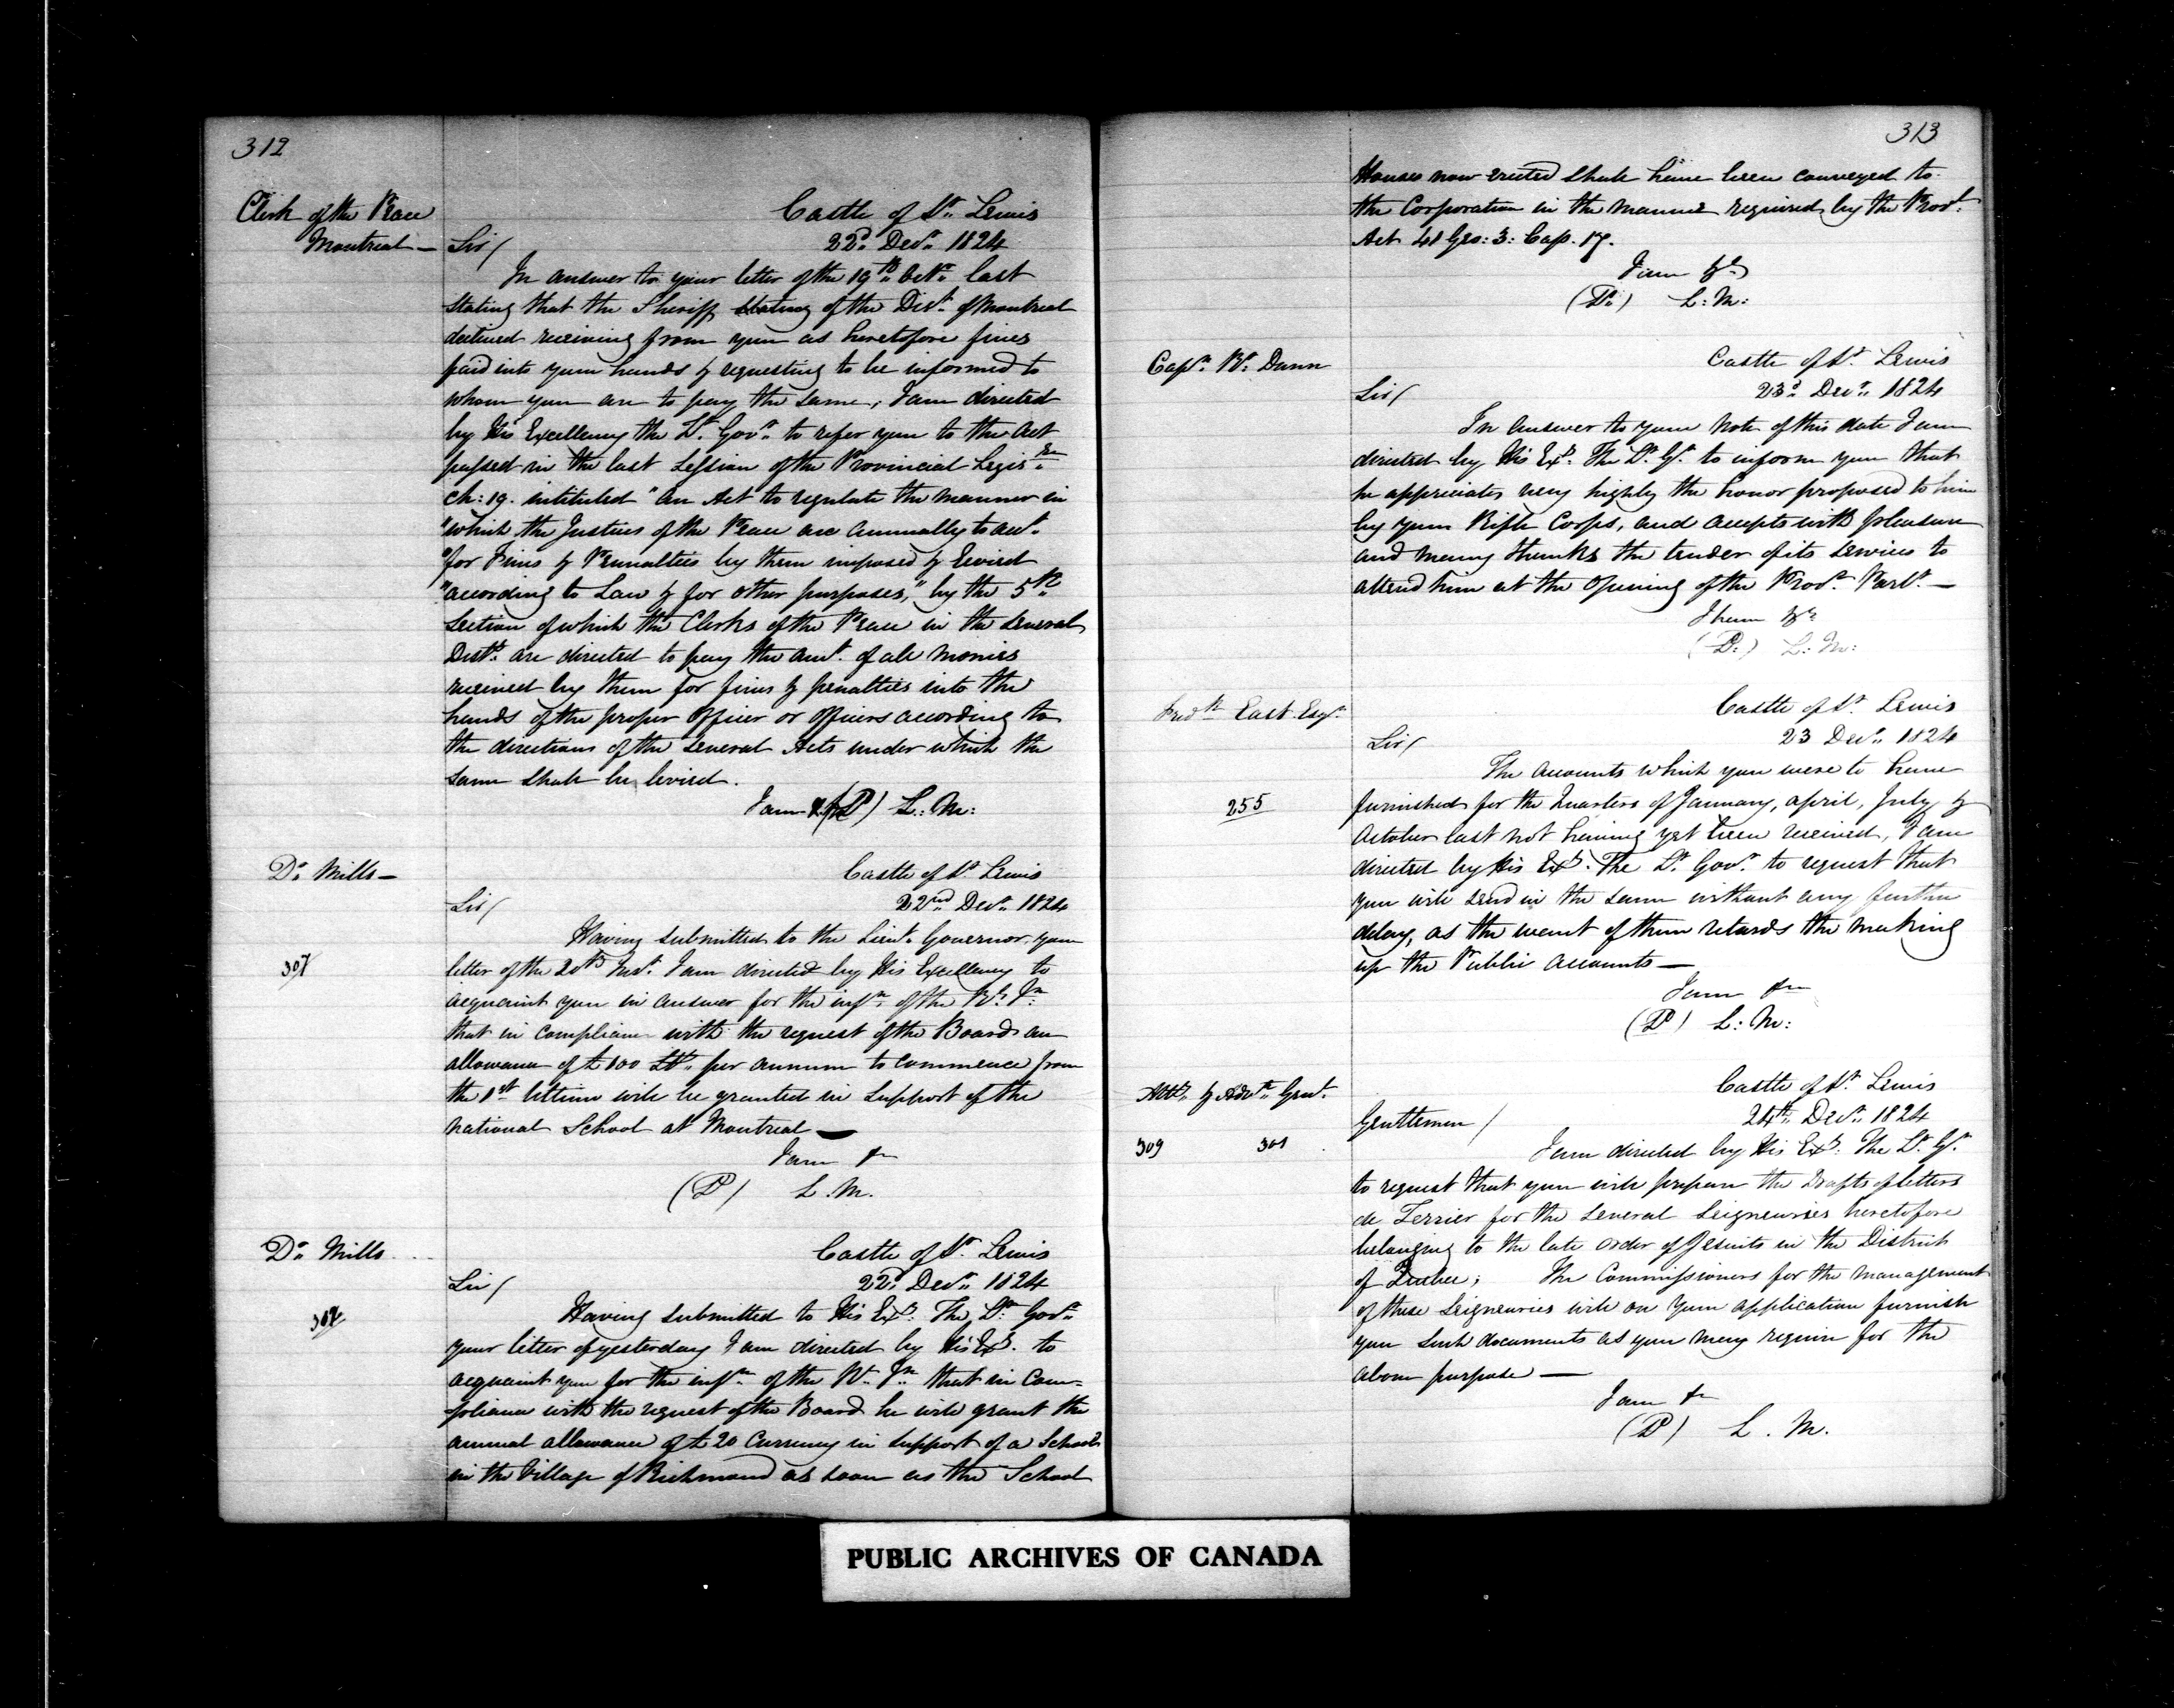 312
Clerk of the Peace
Montreal —
Castle of St. Lewis
22d. Decr. 1824
Sir/
In answer to your letter of the 19th. Octr. last
stating that the Sheriff stating of the Dist. of Montreal
declined receiving from you as heretofore fines
paid into your hands & requesting to be informed to
whom you are to pay the same, I am directed
by His Excellency the Lt. Govr. to refer you to the Act
passed in the last Session of the Provincial Legisre.
Ch: 19. intituled "An Act to regulate the manner in
"which the Justices of the Peace are annually to acct.
"for Fines & Pennalties by them imposed & levied
"according to Law & for other purposes," by the 5th.
Section of which the Clerks of the Peace in the several
Dists. are directed to pay the amt. of all monies
received by them for fines & penalties into the
hands of the proper Officer or Officers according to
the directions of the several Acts under which the
same shall be levied.
I am &c (P) L: M:
Dr. Mills —
Castle of St. Lewis
22nd. Decr. 1824
Sir/
Having submitted to the Lieut. Governor your
307
letter of the 20th Inst. I am directed by His Excellency to
acquaint you in answer for the infn. of the Rl. In.
that in compliance with the request of the Board an
allowance of £100 Stg. per annum to commence from
the 1st ultimo will be granted in support of the
National School at Montreal —
I am &c
(P) L. M.
Dr. Mills
Castle of St. Lewis
22d. Decr. 1824
Sir/
Having submitted to His Exy. The Lt. Govr.
307
your letter of yesterday I am directed by His Exy. to
acquaint you for the infn. of the Rl. In. that in Com=
=pliance with the request of the Board he will grant the
annual allowance of £20 Currency in support of a School
in the Village of Richmond as soon as the School
313
Houses now erected shall have been conveyed to
the Corporation in the manner required by the Provl.
Act 41 Geo: 3: Cap. 17.
I am &c
(P.) L: M:
Capn. Wm. Dunn
Castle of St. Lewis
23d. Decr. 1824
Sir/
In answer to your Note of this date I am
directed by His Exy. The Lt. Gr. to inform you that
he appreciates very highly the honor proposed to him
by your Rifle Corps, and accepts with pleasure
and many thanks the tender of its services to
attend him at the Opening of the Provl. Parlt. —
I have &c
(P.) L: M:
Fredk. East Esqr.
Castle of St. Lewis
23 Decr. 1824
Sir/
The Accounts which you were to have
255
furnished for the Quarters of January, April, July &
October last not having yet been received, I am
directed by His Exy. The Lt. Govr. to request that
you will send in the same without any further
delay, as the want of them retards the making
up the Public Accounts —
I am &c
(P) L: M:
Atty. & Advte. Genl.
Castle of St. Lewis
24th. Decr. 1824
Gentlemen/
309 301
I am directed by His Exy. The Lt. Gr.
to request that you will prepare the Drafts of Letters
de Terrier for the several Seigneuries heretofore
belonging to the late Order of Jesuits in the District
of Quebec; The Commissioners for the management
of these Seigneuries will on your application furnish
you such documents as you may require for the
above purpose —
I am &c
(P) L. M.
PUBLIC ARCHIVES OF CANADA